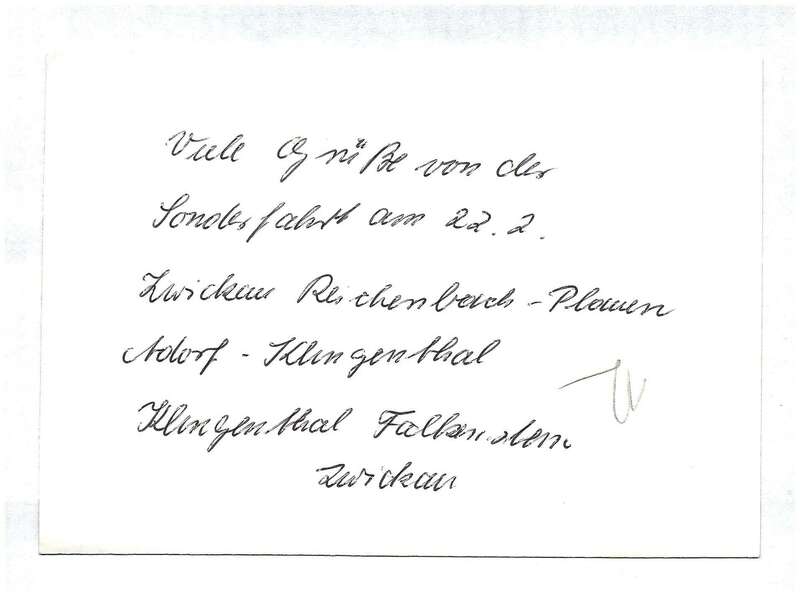 Viele Grüße von der
Sonderfahrt am 22. 2.
Zwickau Reichenbach - Plauen
Adorf - Klingenthal
Klingenthal Falkenstein
Zwickau